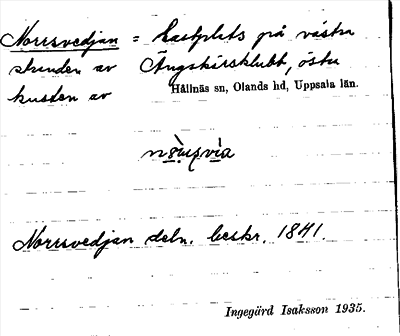 Norrsvedjan = Lastplats på västra
stranden av Ängskärsklubb, östra
kusten av Hållnäs sn, Olands hd, Uppsala län.
Norrsvedjan deln. beskr. 1841.
Ingegärd Isaksson 1935.